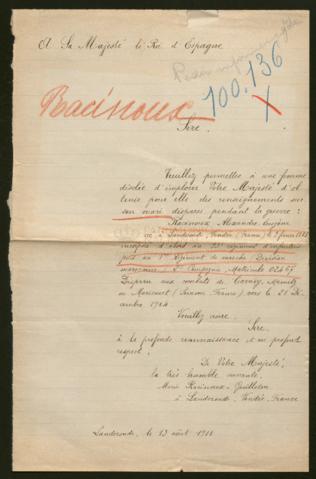 A Sa Majesté le Roi d'Espagne
100.136
Racinoux
Sire.
Veuillez permettre à une femme
désolée d'implorer Votre Majesté d'ob-
tenir pour elle des renseignements sur
son mari disparu pendant la guerre :
Racinoux Alexandre Eugène
né à Landeronde, Vendée (France) le
incorporé d'abord au 93e régiment d'infanterie
puis au 1er Régiment de marche Division
marocaine. Compagnie, Matricule 02467
Disparu aux combats de Carnoy, Mametz
ou Maricourt (Somme, France) vers le 21 Dé-
cembre 1914
Veuillez
Sire,
à la profonde reconnaissance et au profond
respect
De Votre Majesté,
la très humble servante.
Marie Racinoux-Guilloton
à Landeronde, Vendée, France
Landeronde, le 13 août